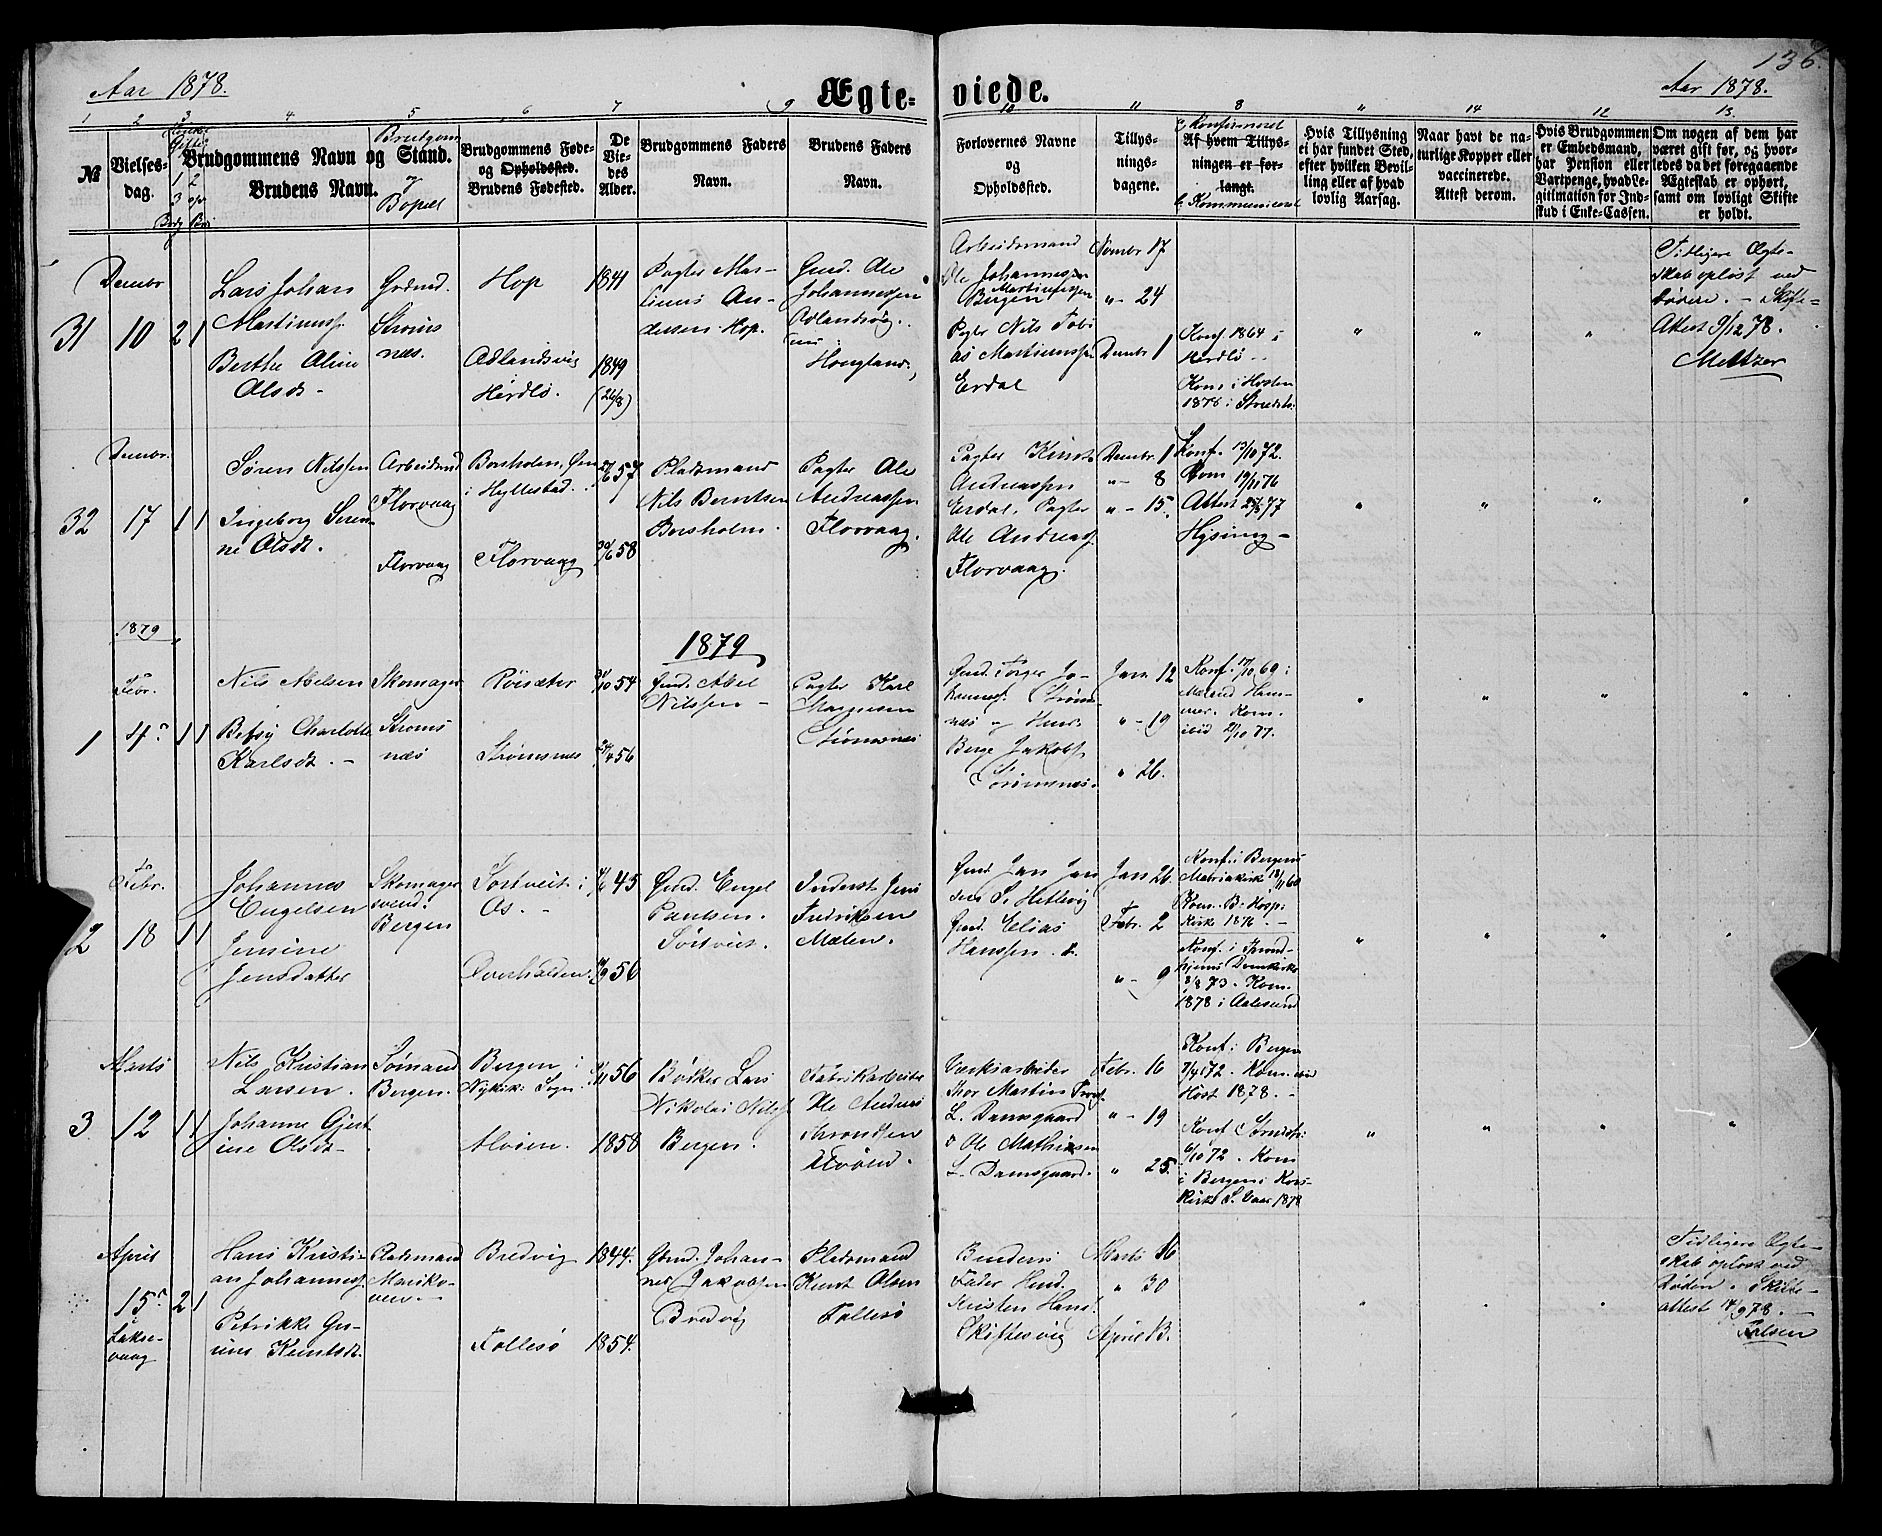 136.
Aar 1878.
Ægte-
viede.
Aar 1878.
1 2 3 4 5 6 7 9 10 " 8 " 14 12 13.
№
Vielses-
dag.
1 2
3
Brudgommens Navn og Stand.
Brudens Navn.
Brudgom
Bopæl
Brudgommens Føde-
og Opholdssted.
Brudens Fødested.
De
Vie-
des
Alder.
Brudgommens Faders
Navn.
Brudens Faders
Navn.
Forlovernes Navne
og
Opholdssted.
Tillys-
nings-
dagene.
Konfirmeret
Af hvem Tillys-
ningen er for-
langt.
Hvis Tillysning
ei har fundet Sted,
efter hvilken Bevil-
ling eller af hvad
lovlig Aarsag.
Naar havt de na-
turlige Kopper eller
vaccinerede.
Attest derom.
Hvis Brudgommen
er Embedsmand,
har Pension eller
Vartpenge, hvad Le-
gitimation for Ind-
skud i Enke-Cassen.
Om nogen af dem har
været gift før, og hvor-
ledes da det foregaaende
Ægteskab er ophørt,
samt om lovligt Skifte
er holdt.
31
Decmbr
10
2 1
Lars Johan
Martinuss.
Berthe Oline
Olsdt -
Strøms
næs.
Hop
Herdlø.
1841
1849
(26/8)
Pagter Mar-
tinus An-
dersen Hop.
Gmd. Ole
Johannessen
Hougland,
Arbeidsmand
Ole Johannesen
Martinussen
Bergen
Pagter Nils Tobi
as Martinussen
Erdal
Novmbr 17
" - 24
Decmbr 1
Konf 1864 i
Herdlø -
Kom i Høsten
"
"
"
Tidligere Ægte-
skab opløst ved
Døden. - Skifte-
Attest 9/12 78.
Meltzer
32
Decmbr.
17
1 1
Søren Nilssen
Ingeborg Seren-
ne Olsdt.
Arbeidsmd
Florvaag
Florvaag
i Hyllestad.
Florvaag
57
58
Pladsmand
Nils Berntsen
Pagter Ole
Andreassen
Florvaag.
Pagter Knut
Andreassen
Erdal, Pagter
Ole Andreass.
Florvaag.
Decmbr. 1
" - 8
" - 15.
Konf. 13/10 72.
Kom 19/11 76
Hysing -
"
"
"
"
1879
1879
1
Febr.
4.
1 1
Nils Abelsen
Betsy Charlotte
Karlsdt. -
Skomager
Strøms
næs
Røisæter
Strømsnæs
54
56
Gmd. Abel
Nilssen -
Pagter Karl
Magnesen
Strømsnæs
Gmd. Torger Jo-
hannes. Strøm
næs
Berge Jakobs.
Strømsnæs.
Jan. 12
" - 19
" 26.
"
"
"
"
2
Febr.
18
1 1
Johannes
Engelsen
Jensine
Jensdatter
Skomager
svend.
Bergen
Sørtveit i
Os. -
Overhalden.
45
56
Gmd. Engel
Paulsen.
Sørtveit.
Inderst Jens
Fredriksen
Mælen.
Gmd. Jan Jan
sen S. Hetlevig
Gmd. Elias
Hanssen.
Jan 26.
Febr. 2
" - 9
Konf. i Bergens
Mariakirk
Kom. B. Hosp:
Kirke 1876. -
Konf. i Trond-
hjems Domkirke
8/8 73. Kom.
1878 i Aalesund
"
"
"
"
3.
Marts
12
1 1
Nils Kristian
Larsen.
Johanne Gjert-
ine Olsdt-
Sømand
Bergen.
Bergen i
Nykirk. Sogn.
Alvøen.
56
1858
Bødker Lars
Nikolai Nilss
Bergen.
Fabrikarbeider
Ole Andreas
Throndsen
Alvøen.
Værksarbeider
Thor Martin
L. Damsgaard
o Ole Mathiasen
L. Damsgaard.
Febr. 16
" - 19
" 25.
Konf i Bergen
7/4 72. Kom. ibid
Høst 1878. -
6/10 72. Kom
i Bergens Kors-
kirke S. Vaar 1878
"
"
"
"
April
15
Lakse-
vaag
2 1
Hans Kristi-
an Johanness.
Petrikke Gu-
rine Knutsdt.
Pladsmand
Bredvig
Follesø
1844.
1854.
Gmd. Johan-
nes Jakobsen
Bredvig
Pladsmand
Knut Olsen
Follesø
Brudens
Fader Hmd.
Kristen Hans.
Skiftesvig
Marts 16
" 30
April 13.
"
"
"
Tidligere Ægte-
skab opløst ved
Døden. Skifte-
attest 14/9 78. -
Falsen